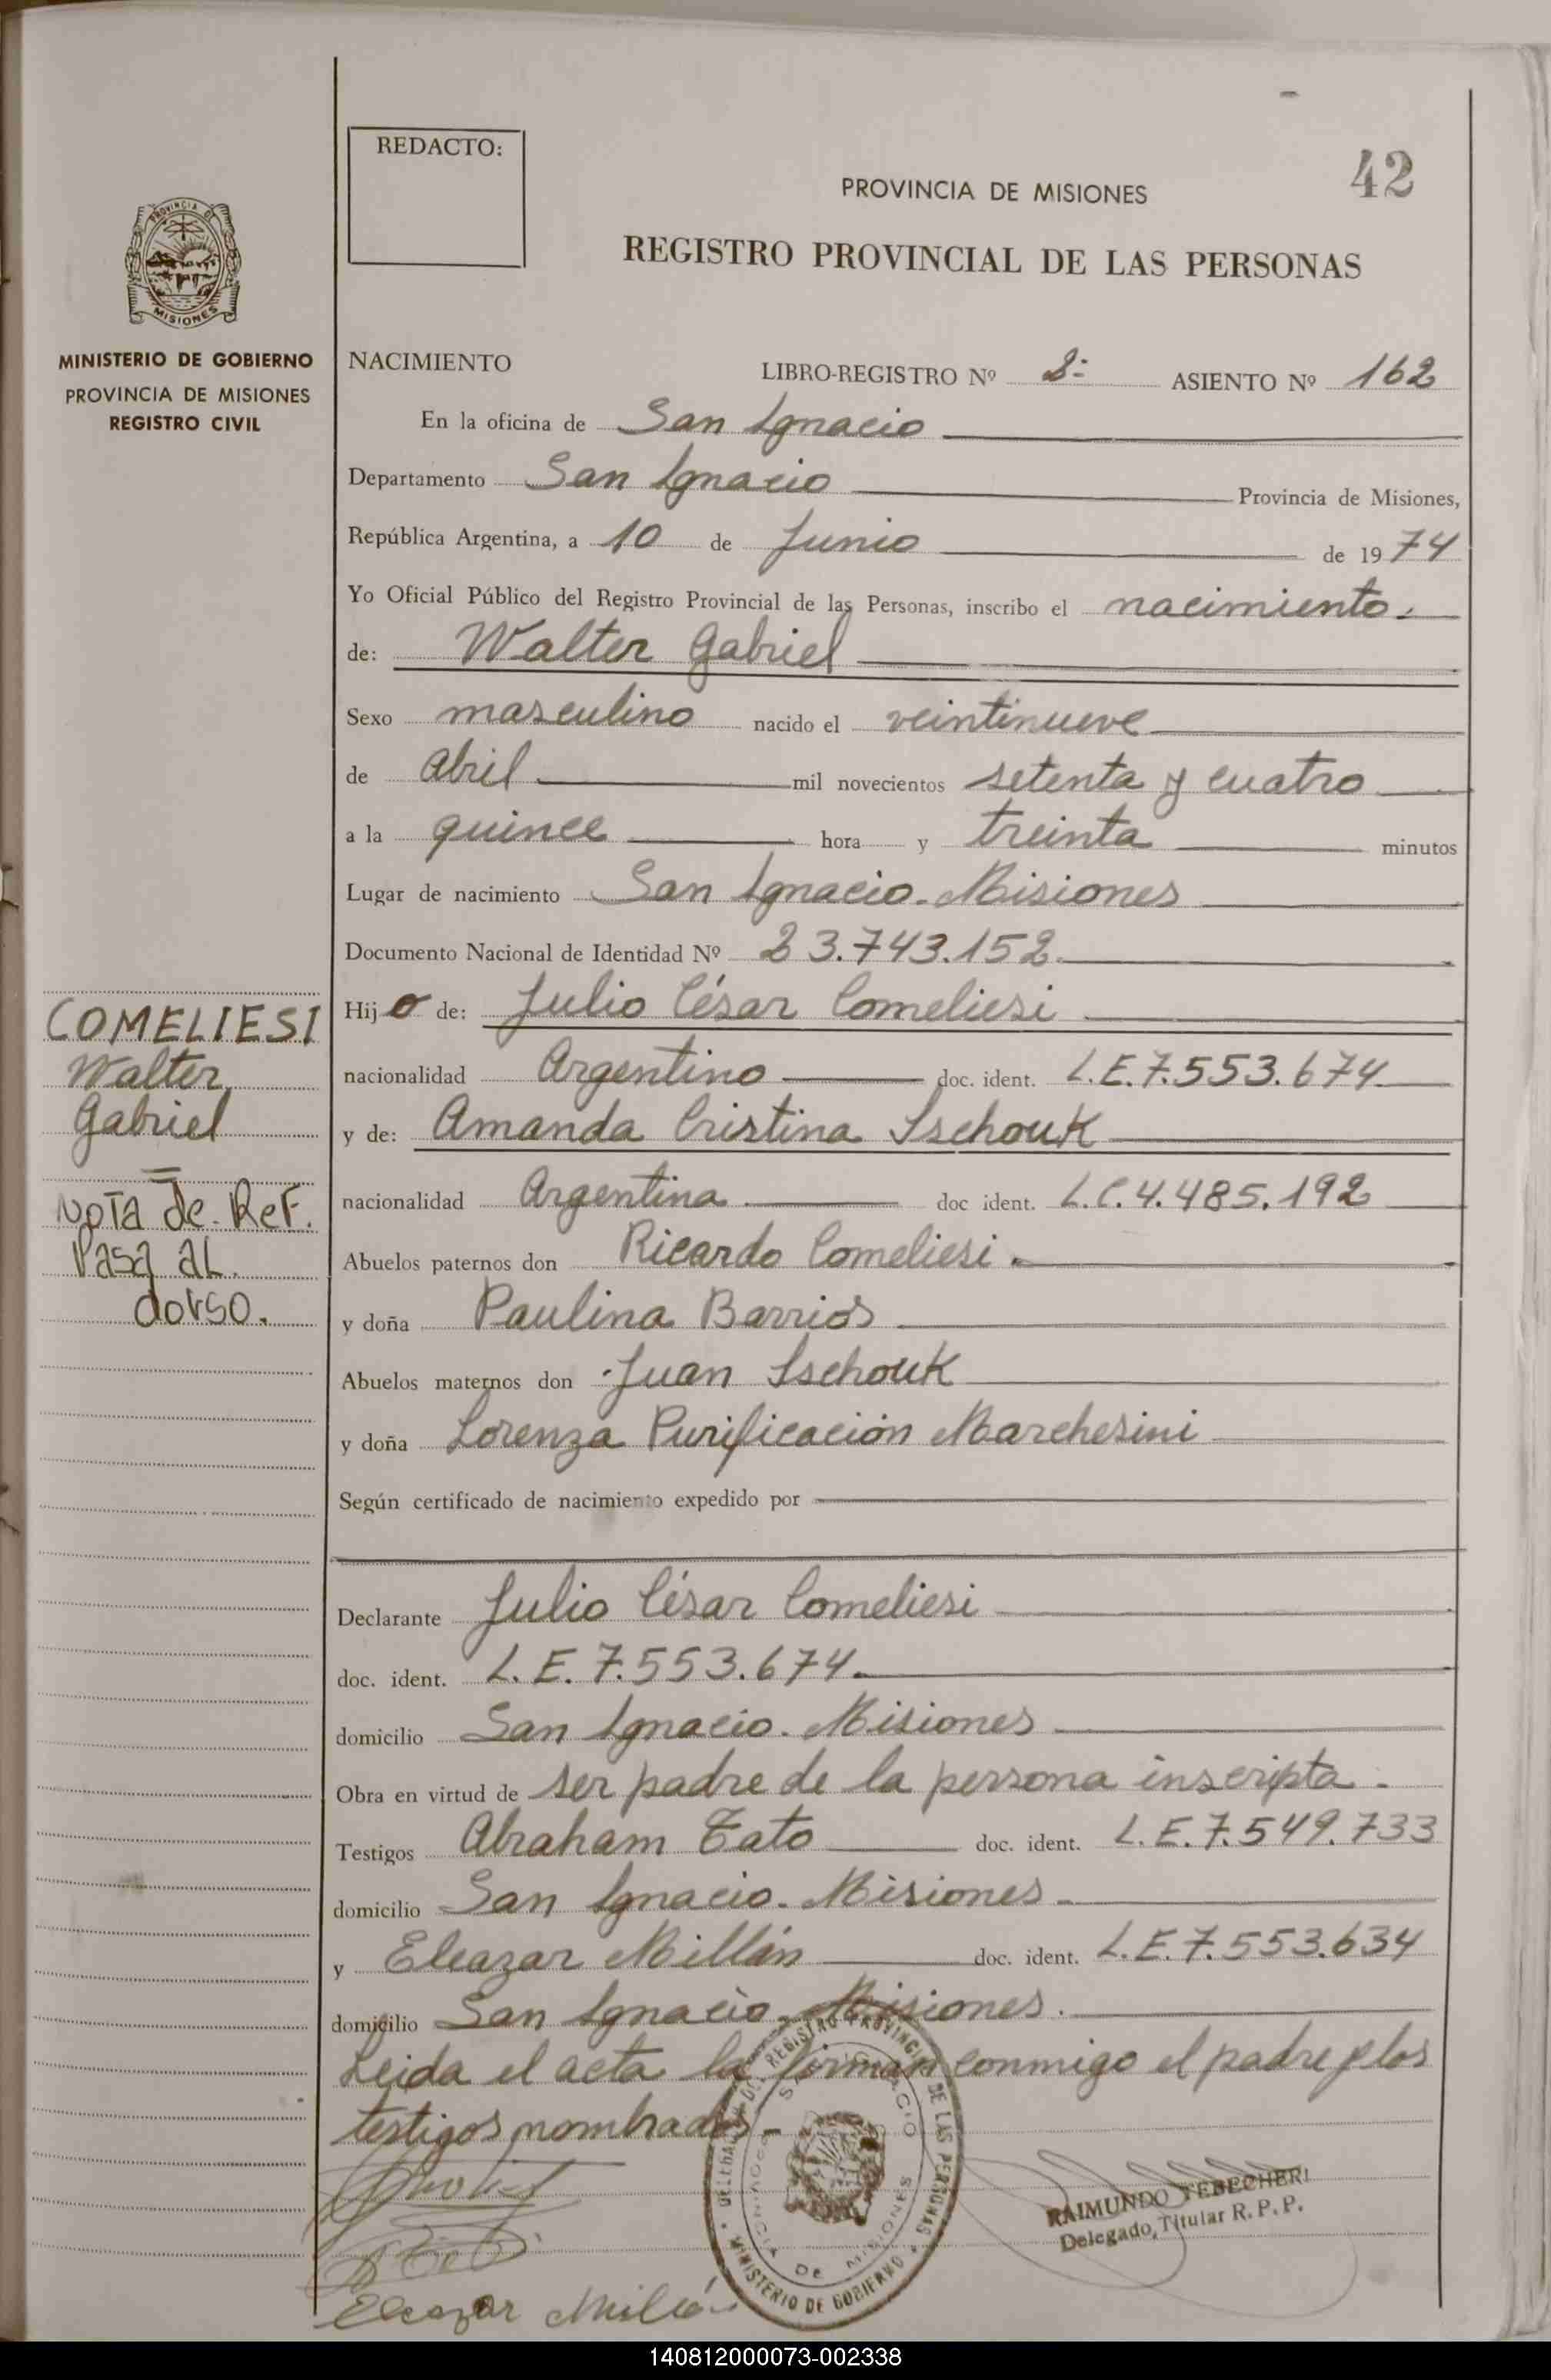 REDACTO:
42
PROVINCIA DE MISIONES
REGISTRO PROVINCIAL DE LAS PERSONAS
PROVINCIA DE
MISIONES
MINISTERIO DE GOBIERNO
PROVINCIA DE MISIONES
REGISTRO CIVIL
NACIMIENTO LIBRO-REGISTRO Nº 2- ASIENTO Nº 162
En la oficina de San Ignacio
Departamento San Ignacio Provincia de Misiones,
República Argentina, a 10 de Junio de 1974
Yo Oficial Público del Registro Provincial de las Personas, inscribo el nacimiento.
de: Walter Gabriel
Sexo masculino nacido el veintinueve
de abril mil novecientos setenta y cuatro
a la quince hora y treinta minutos
Lugar de nacimiento San Ignacio-Misiones
Documento Nacional de Identidad Nº 23.743.152
Hijo de: Julio César Comeliesi
nacionalidad Argentino doc. ident. L.E.7.553.674
y de: Amanda Cristina Sschouk
nacionalidad Argentina doc ident. L.C.4.485.192
Abuelos paternos don Ricardo Comeliesi.
y doña Paulina Barrios
Abuelos maternos don Juan Sschouk
y doña Lorenza Purificación Marchesini
Según certificado de nacimiento expedido por
COMELIESI
Walter
Gabriel
NOTA de. ReF.
Pasa aL
dorso.
Declarante Julio César Comeliesi
doc. ident. L.E.7.553.674.
domicilio San Ignacio. Misiones
Obra en virtud de ser padre de la persona inscripta.
Testigos Abraham Tato doc. ident. L.E.7.549.733
domicilio San Ignacio. Misiones
y Eleazar Millán doc. ident. L.E.7.553.634
domicilio San Ignacio. Misiones.
Leida el acta la firman conmigo el padre y los
testigos nombrados.-
REGISTRO PROVINCIAL DE LAS PERSONAS
MINISTERIO DE GOBIERNO
PROVINCIA DE MISIONES
RAIMUNDO TEBECHERI
Delegado Titular R. P. P.
Eleazar Millán
140812000073-002338